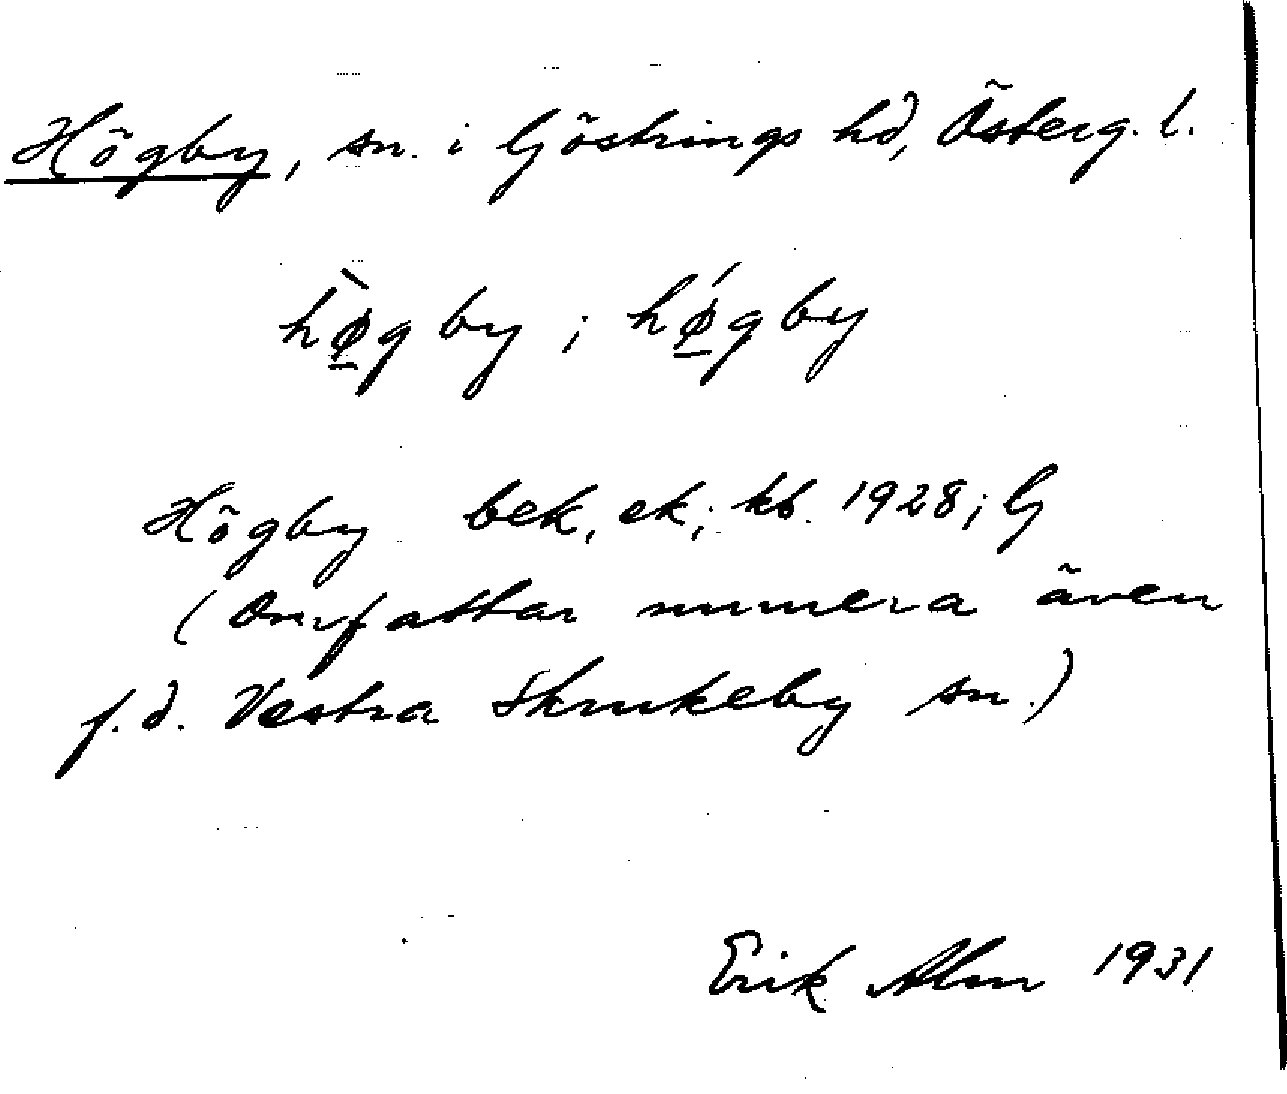 Högby, sn. i Göstrings hd, Österg. l.
hø̱̀g by ; hǿ̱gby
Högby bek, ek; kb. 1928; Gj
(Omfattar numera även
f.d. Vestra Skrukeby sn.)
Erik Alm 1931